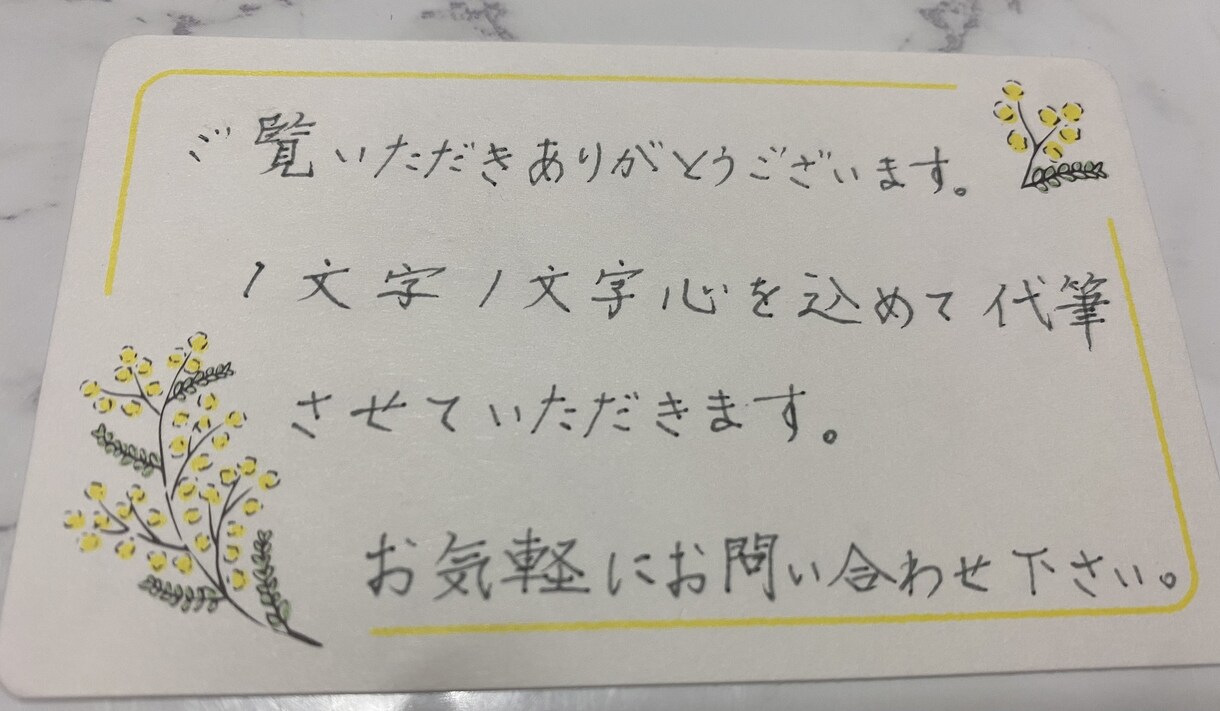 ご覧いただきありがとうございます。
1文字1文字心を込めて代筆
させていただきます。
お気軽にお問い合わせ下さい。